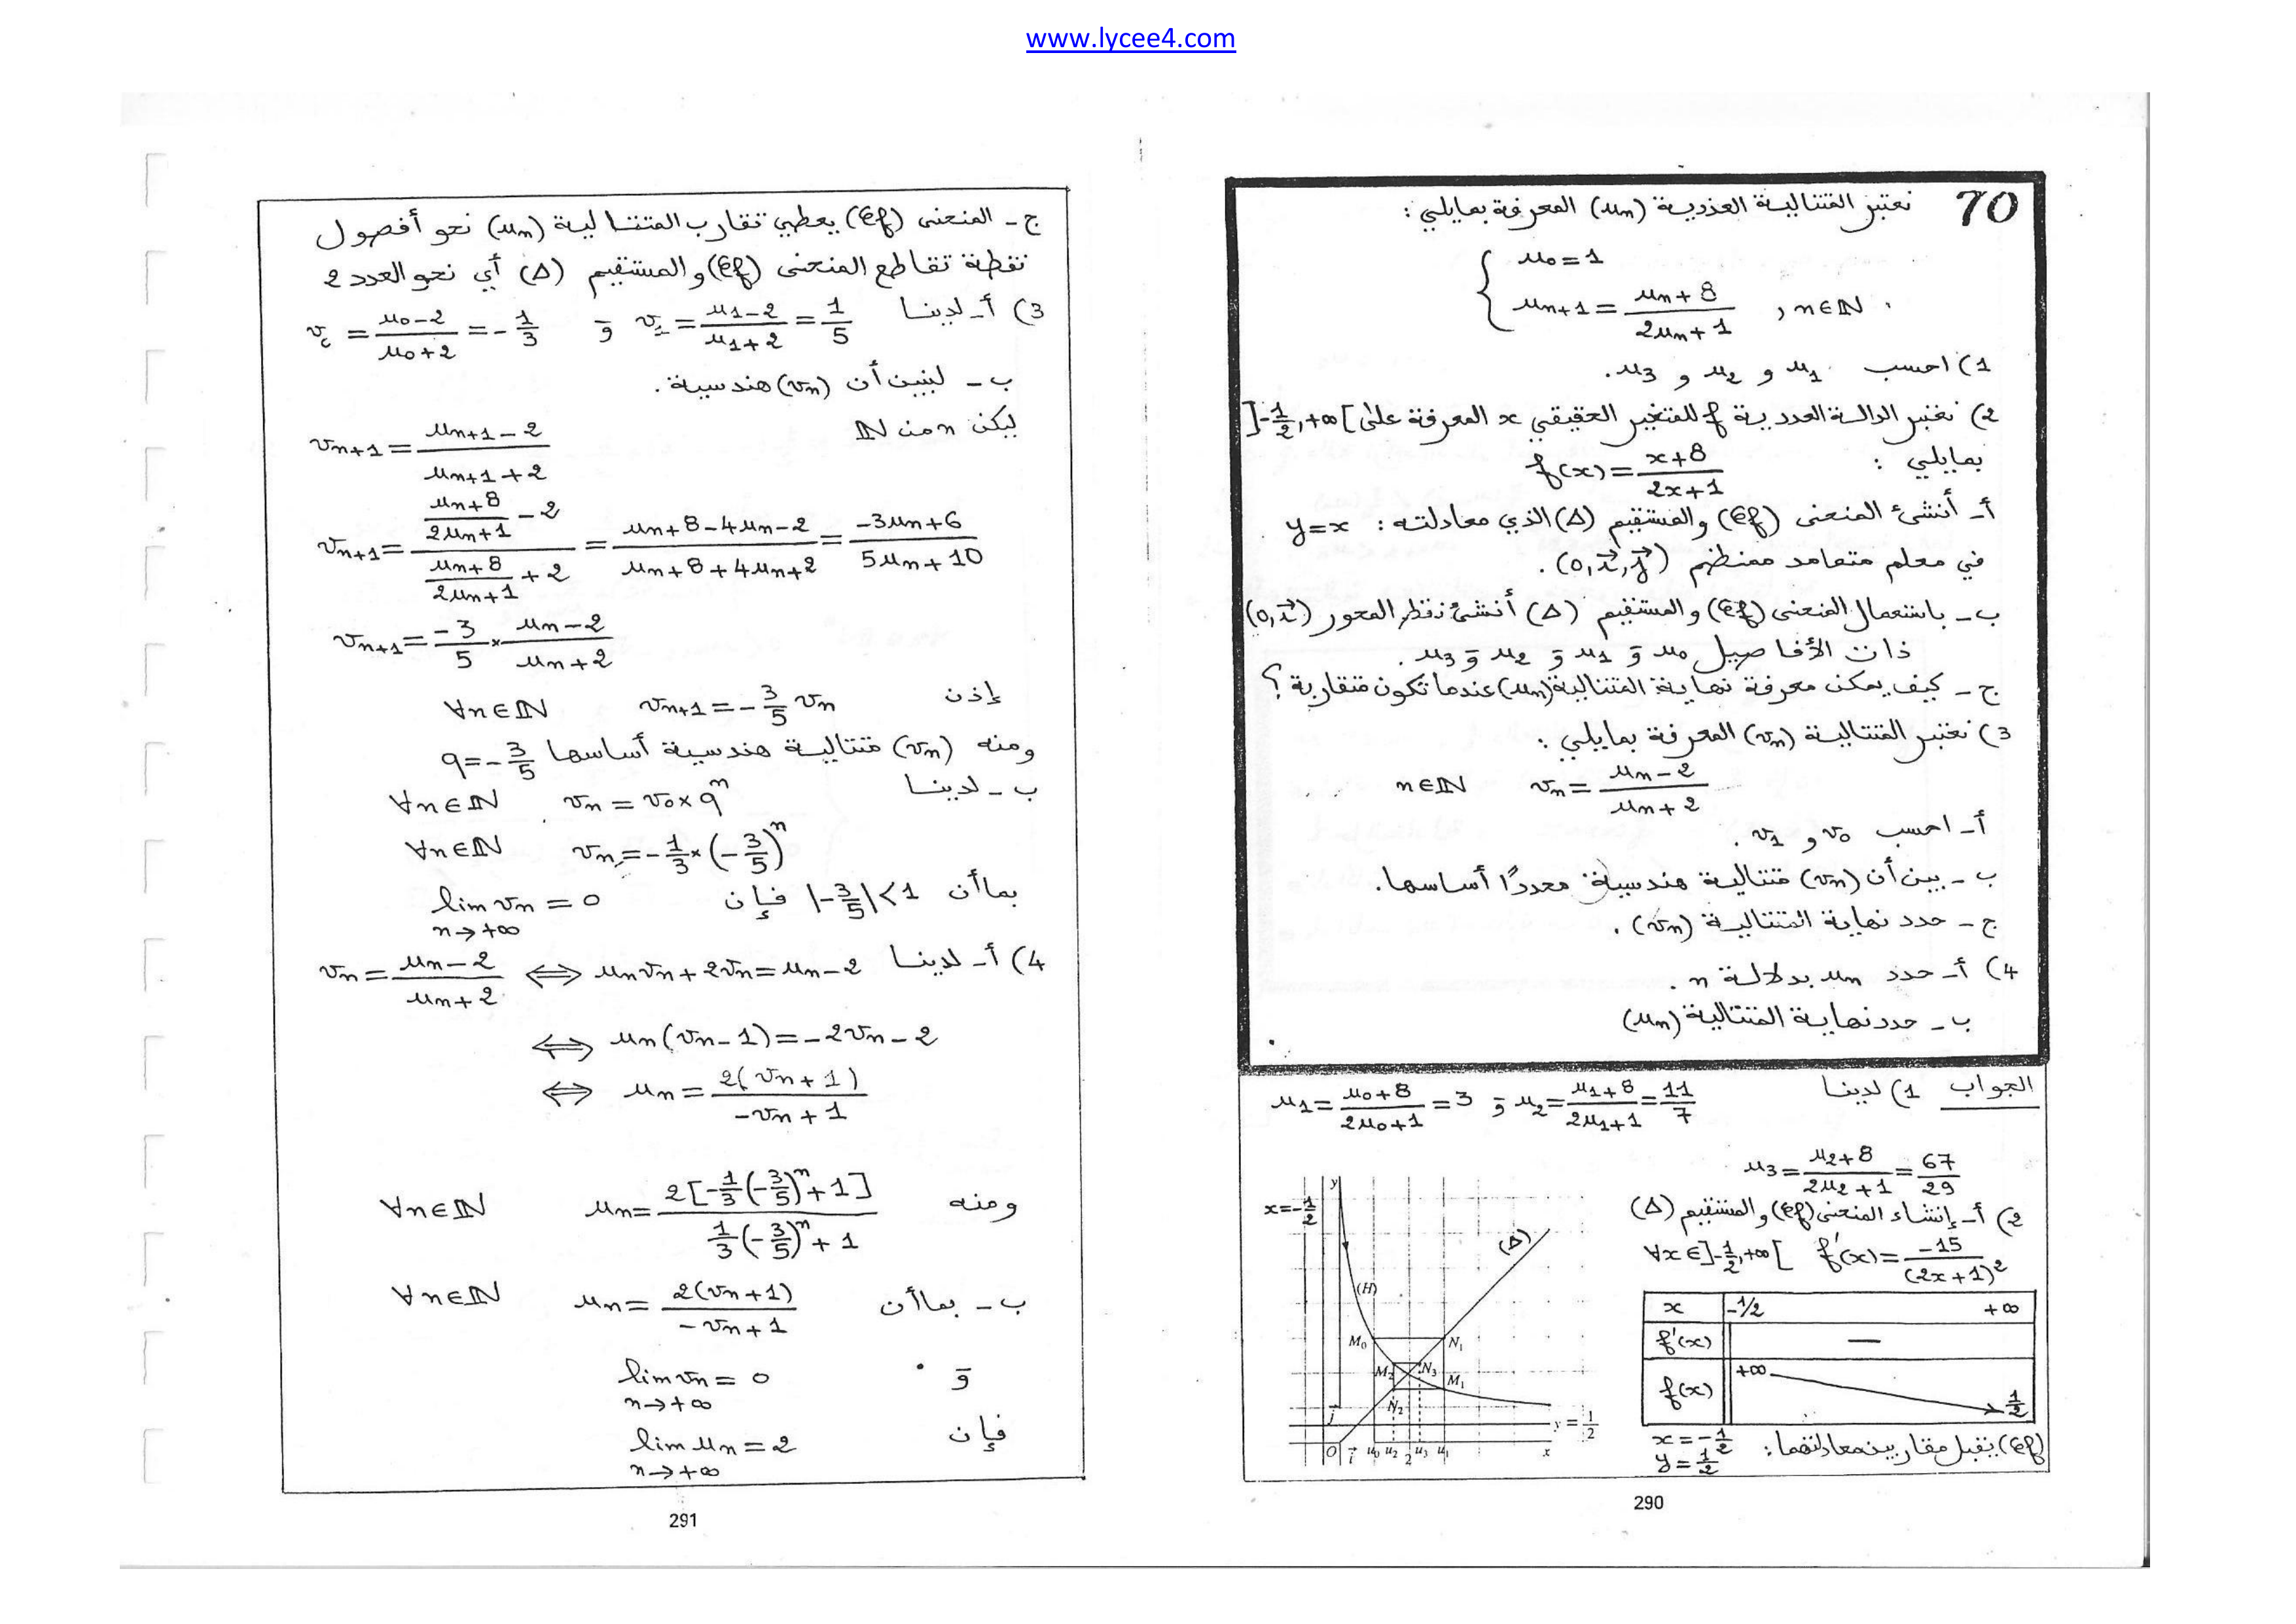 www.lycee4.com
70 نعتبر المتتالية العددية (un) المعرفة بمايلي :
{ u0 = 1
un+1 = (un + 8)/(2un + 1) , n∈ℕ .
1) احسب u1 و u2 و u3.
2) نعتبر الدالة العددية f للمتغير الحقيقي x المعرفة على ]-1/2, +∞[
بمايلي : f(x) = (x+8)/(2x+1)
أ- أنشئ المنحنى (Cf) والمستقيم (Δ) الذي معادلته : y = x
في معلم متعامد ممنظم (O, i, j) .
ب- باستعمال المنحنى (Cf) والمستقيم (Δ) أنشئ نقط المحور (O, i)
ذات الأفاصيل u0 و u1 و u2 و u3 .
ج- كيف يمكن معرفة نهاية المتتالية (un) عندما تكون متقاربة ؟
3) نعتبر المتتالية (vn) المعرفة بمايلي :
vn = (un - 2)/(un + 2) n∈ℕ
أ- احسب v0 و v1 .
ب- بين أن (vn) متتالية هندسية محددًا أساسها.
ج- حدد نهاية المتتالية (vn) .
4) أ- حدد un بدلالة n .
ب- حدد نهاية المتتالية (un)
الجواب 1) لدينا u1 = (u0+8)/(2u0+1) = 3 و u2 = (u1+8)/(2u1+1) = 11/7
u3 = (u2+8)/(2u2+1) = 67/29
2) أ- إنشاء المنحنى (Cf) والمستقيم (Δ)
∀x∈]-1/2, +∞[ f'(x) = -15/(2x+1)²
x -1/2 +∞
f'(x) −
f(x) +∞ 1/2
(Cf) يقبل مقاربين معادلتهما : x = -1/2
y = 1/2
x = -1/2 y
(Δ)
(H)
M0 N1
M2 N3 M1
N2
j y = 1/2
O i u0 u2 2 u3 u1 x
290
ج- المنحنى (Cf) يعطي تقارب المتتالية (un) نحو أفصول
نقطة تقاطع المنحنى (Cf) والمستقيم (Δ) أي نحو العدد 2
3) أ- لدينا v1 = (u1-2)/(u1+2) = 1/5 و v0 = (u0-2)/(u0+2) = -1/3
ب- لنبين أن (vn) هندسية .
ليكن n من ℕ
vn+1 = (un+1 - 2)/(un+1 + 2)
vn+1 = ((un+8)/(2un+1) - 2)/((un+8)/(2un+1) + 2) = (un+8-4un-2)/(un+8+4un+2) = (-3un+6)/(5un+10)
vn+1 = -3/5 × (un-2)/(un+2)
إذن vn+1 = -3/5 vn ∀n∈ℕ
ومنه (vn) متتالية هندسية أساسها q = -3/5
ب- لدينا vn = v0 × qⁿ ∀n∈ℕ
vn = -1/3 × (-3/5)ⁿ ∀n∈ℕ
بما أن |-3/5| < 1 فإن lim vn = 0
n→+∞
4) أ- لدينا vn = (un-2)/(un+2) ⟺ unvn + 2vn = un - 2
⟺ un(vn - 1) = -2vn - 2
⟺ un = 2(vn+1)/(-vn+1)
ومنه un = 2[-1/3(-3/5)ⁿ+1]/(1/3(-3/5)ⁿ+1) ∀n∈ℕ
ب- بما أن un = 2(vn+1)/(-vn+1) ∀n∈ℕ
و lim vn = 0
n→+∞
فإن lim un = 2
n→+∞
291